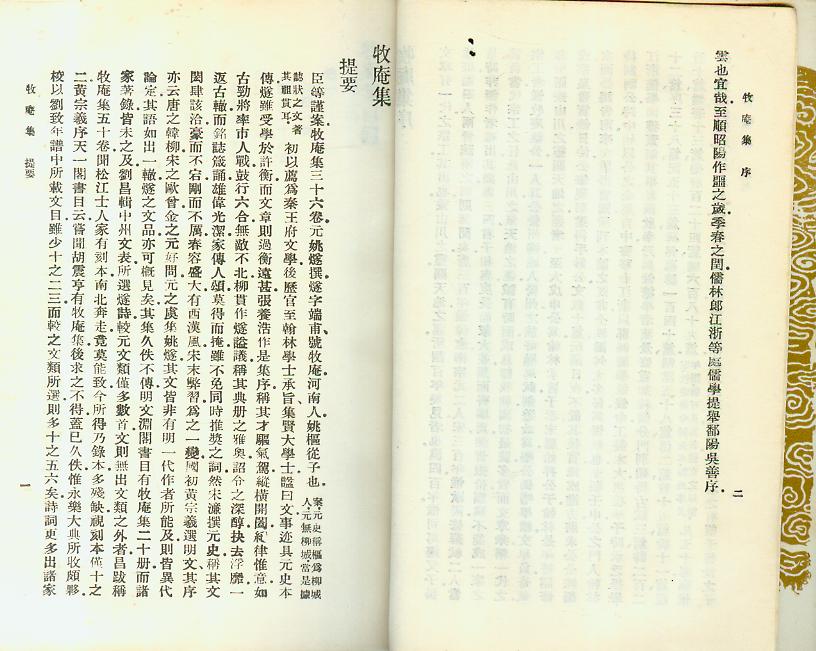 牧庵集　序
雲也宜哉。至順昭陽作噩之歲。季春之閏。儒林郎江浙等處儒學提舉鄱陽吳善序。
二
牧庵集
提要
臣等謹案牧庵集三十六卷。元姚燧撰。燧字端甫。號牧庵。河南人。姚樞從子也。案元史稱樞為柳城人。元無柳城。當是據
誌狀之文。著其祖貫耳。初以薦爲秦王府文學。後歷官至翰林學士承旨、集賢大學士。諡曰文。事迹具元史本
傳。燧雖受學於許衡。而文章則過衡遠甚。張養浩作是集序。稱其才驅氣駕。縱橫開闔。紀律惟意。如
古勁將率市人戰。鼓行六合。無敵不北。柳貫作燧諡議。稱其典册之雅奧。詔令之深醇。抉去浮靡。一
返古轍。而銘誌箴誦。雄偉光潔。家傳人頌。莫得而掩。雖不免同時推獎之詞。然宋濂撰元史。稱其文
閎肆該洽。豪而不宕。剛而不厲。舂容盛大。有西漢風。宋末弊習。爲之一變。國初黃宗羲選明文。其序
亦云。唐之韓柳。宋之歐曾。金之元好問。元之虞集姚燧。其文皆非有明一代作者所能及。則皆異代
論定。其語如出一轍。燧之文品亦可概見矣。其集久佚不傳。明文淵閣書目有牧庵集二十册。而諸
家著錄皆未之及。劉昌輯中州文表。所選燧詩。較元文類僅多數首。文則無出文類之外者。昌跋稱
牧庵集五十卷。聞松江士人家有刻本。南北奔走。竟莫能致。今所得乃錄本。多殘缺。視刻本僅十之
二。黃宗羲序天一閣書目云。嘗聞胡震亨有牧庵集。後求之不得。蓋已久佚。惟永樂大典所收頗夥。
校以劉致年譜中所載文目。雖少十之二三。而較之文類所選。則多十之五六矣。詩詞更多出諸家
牧庵集　提要
一